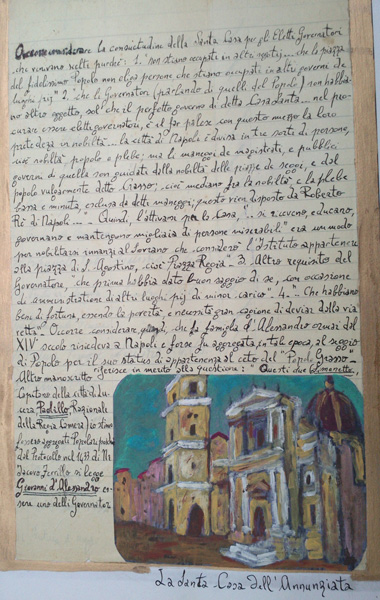 Occorre considerare la consuetudine della Santa Casa per gli Eletti Governatori
che venivano scelti purché: 1. "non stiano occupati in altri offitij.... che la piazza
del fidelissimo Popolo non elegga persone che stiano occupati in altri governi de
luoghi pij." 2. "che li Governatori (parlando di quelli del Popolo) non habbia-
no altro oggetto, sol che il perfetto governo di detta Casa Santa... nel pro-
curare essere eletti governatori, è il far palese con questo mezzo la loro
pretedeza in nobiltà... la città di Napoli è divisa in tre sorti di persone,
cioè nobiltà, popolo e plebe; ma li maneggi de magistrati, e pubblici
governi di quella son guidati della nobiltà delle piazze de seggi, e dal
popolo valgarmente detto Grasso, cioè mediano fra la nobiltà e la plebe
bassa e minuta, esclusa da detti maneggi; questo vien disposto da Roberto
Ré di Napoli...." Quindi, l'attivarsi per la Casa, "... si ricevono, educano,
governano e mantengono migliaia di persone miserabili" era un modo
per nobilitarsi innanzi al Sovrano che considerò l'Istituto appartenere
alla piazza di S. Agostino, cioè "Piazza Regia" 3. Altro requisito del
Governatore, "che prima habbia dato buon saggio di se, con occasione
di amministratione di altri luoghi pij di minor carico". 4. "... Che habbiano
beni di fortuna, essendo la povertà e necessità gran cagione di deviar dalla via
retta". Occorre considerare, quindi, che la famiglia d'Alesandro ormai dal
XIV° secolo risiedeva a Napoli e forse fu aggregata, in tale epoca, al seggio
di Popolo per il suo status di appartenenza al ceto del "Popolo Grasso".
Altro manoscritto riferisce in merito alla questione: "Questi due
Capitano della città di Lu-
cera Paolillo, Razionale
della Regia Camera
fossero aggregati Popolari, poiché
dal Protocollo nel 1433 di Nr.
Iacovo Ferrillo si legge
Giovanni d'Alessandro es-
sere uno delli Governator
La Santa Casa dell'Annunziata